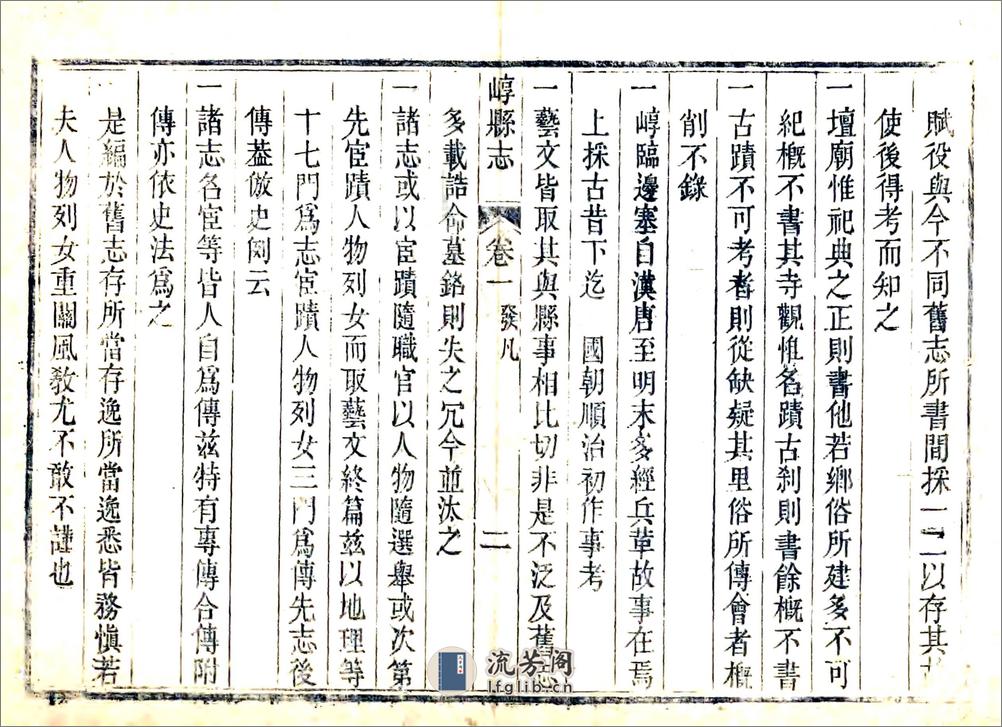 賦役與今不同舊志所書間採一二以存其
使後得考而知之
一壇廟惟祀典之正則書他若鄉俗所建多不可
紀槪不書其寺觀惟名蹟古刹則書餘槪不書
一古蹟不可考者則從缺疑其里俗所傳會者槪
削不錄
一崞臨邊塞自漢唐至明末多經兵革故事在焉
上採古昔下迄 國朝順治初作事考
一藝文皆取其與縣事相比切非是不泛及舊志
崞縣志 卷一 發凡 二
多載誥命墓銘則失之冗今並汰之
一諸志或以宦蹟隨職官以人物隨選舉或次第
先宦蹟人物列女而取藝文終篇玆以地理等
十七門爲志宦蹟人物列女三門爲傳先志後
傳葢倣史例云
一諸志名宦等皆人自爲傳玆特有專傳合傳附
傳亦依史法爲之
是編於舊志存所當存逸所當逸悉皆務愼若
夫人物列女重關風敎尤不敢不謹也
流芳閣
lfglib.cn